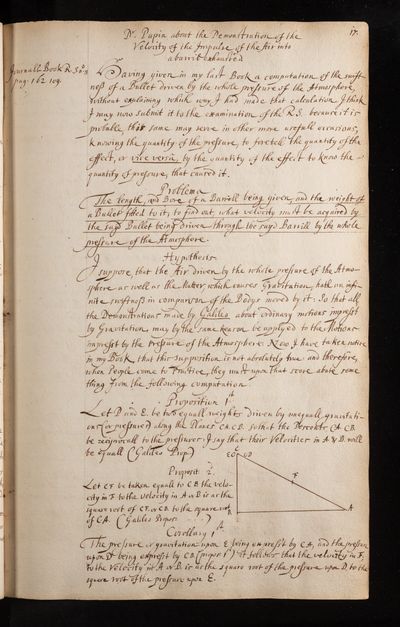 17.
Dr. Papin about the Demonstration of the
Velocity of the Impulse of the Air into
a barrit exhausted
Journall Book R. So:
pag: 162 109.
Having given in my last Book a computation of the swift-
ness of a Bullet driven by the whole pressure of the Atmosphere,
without explaining which way I had made that calculation I think
I may now submit it to the examination of the R.S. because it is
probable, that same may serve in other more usefull occasions,
knowing the quantity of the pressure, to foretell the quantity of the
effect, or vice versâ, by the quantity of the effect to know the
quantity of pressure, that caused it.
Problema
The length, and Bore of a Barrill being given, and the weight of
a Bullet fitted to it; to find out, what velocity must be acquired by
the sayd Bullet being driven through the sayd Barrill by the whole
pressure of the Atmosphere.
Hypothesis
I suppose, that the Air driven by the whole pressure of the Atmo-
sphere as well as the Matter which causes Gravitation, hath an infi-
nite swiftness in comparison of the Bodys moved by it: So that all
the Demonstrations made by Galileo about ordinary motions imprest
by Gravitation, may by the same reason be applyed to the Motions
imprest by the Pressure of the Atmosphere. Now I have taken notice
in my Book, that this supposition is not absolutely true and therefore,
when People come to Practice, they must upon that score abate some
thing from the following computation.
Proposition 1st
Let D and E. be two equall weights driven by unequall gravitati-
ons (or pressures) along the Planes CA CB. so that the CA CB
be reciprocall to the pressures: I say that their Velocities in A & B. will
be equall (Galileo Prop)
Proposit 2.
Let CF. be taken equall to CB the velo-
city in F to the velocity in A or B is as the
square root of CF. or CB to the square root
of CA. (Galileo Propos: )
E C D
F
B A
Corollary 1st
The pressure or gravitation upon E being exprest by CA, and the pressure
upon D being exprest by CB (propos 1st) it follows that the velocity in F.
to the Velocity in A or B. is as the square root of the pressure upon D. to the
square root of the pressure upon E.